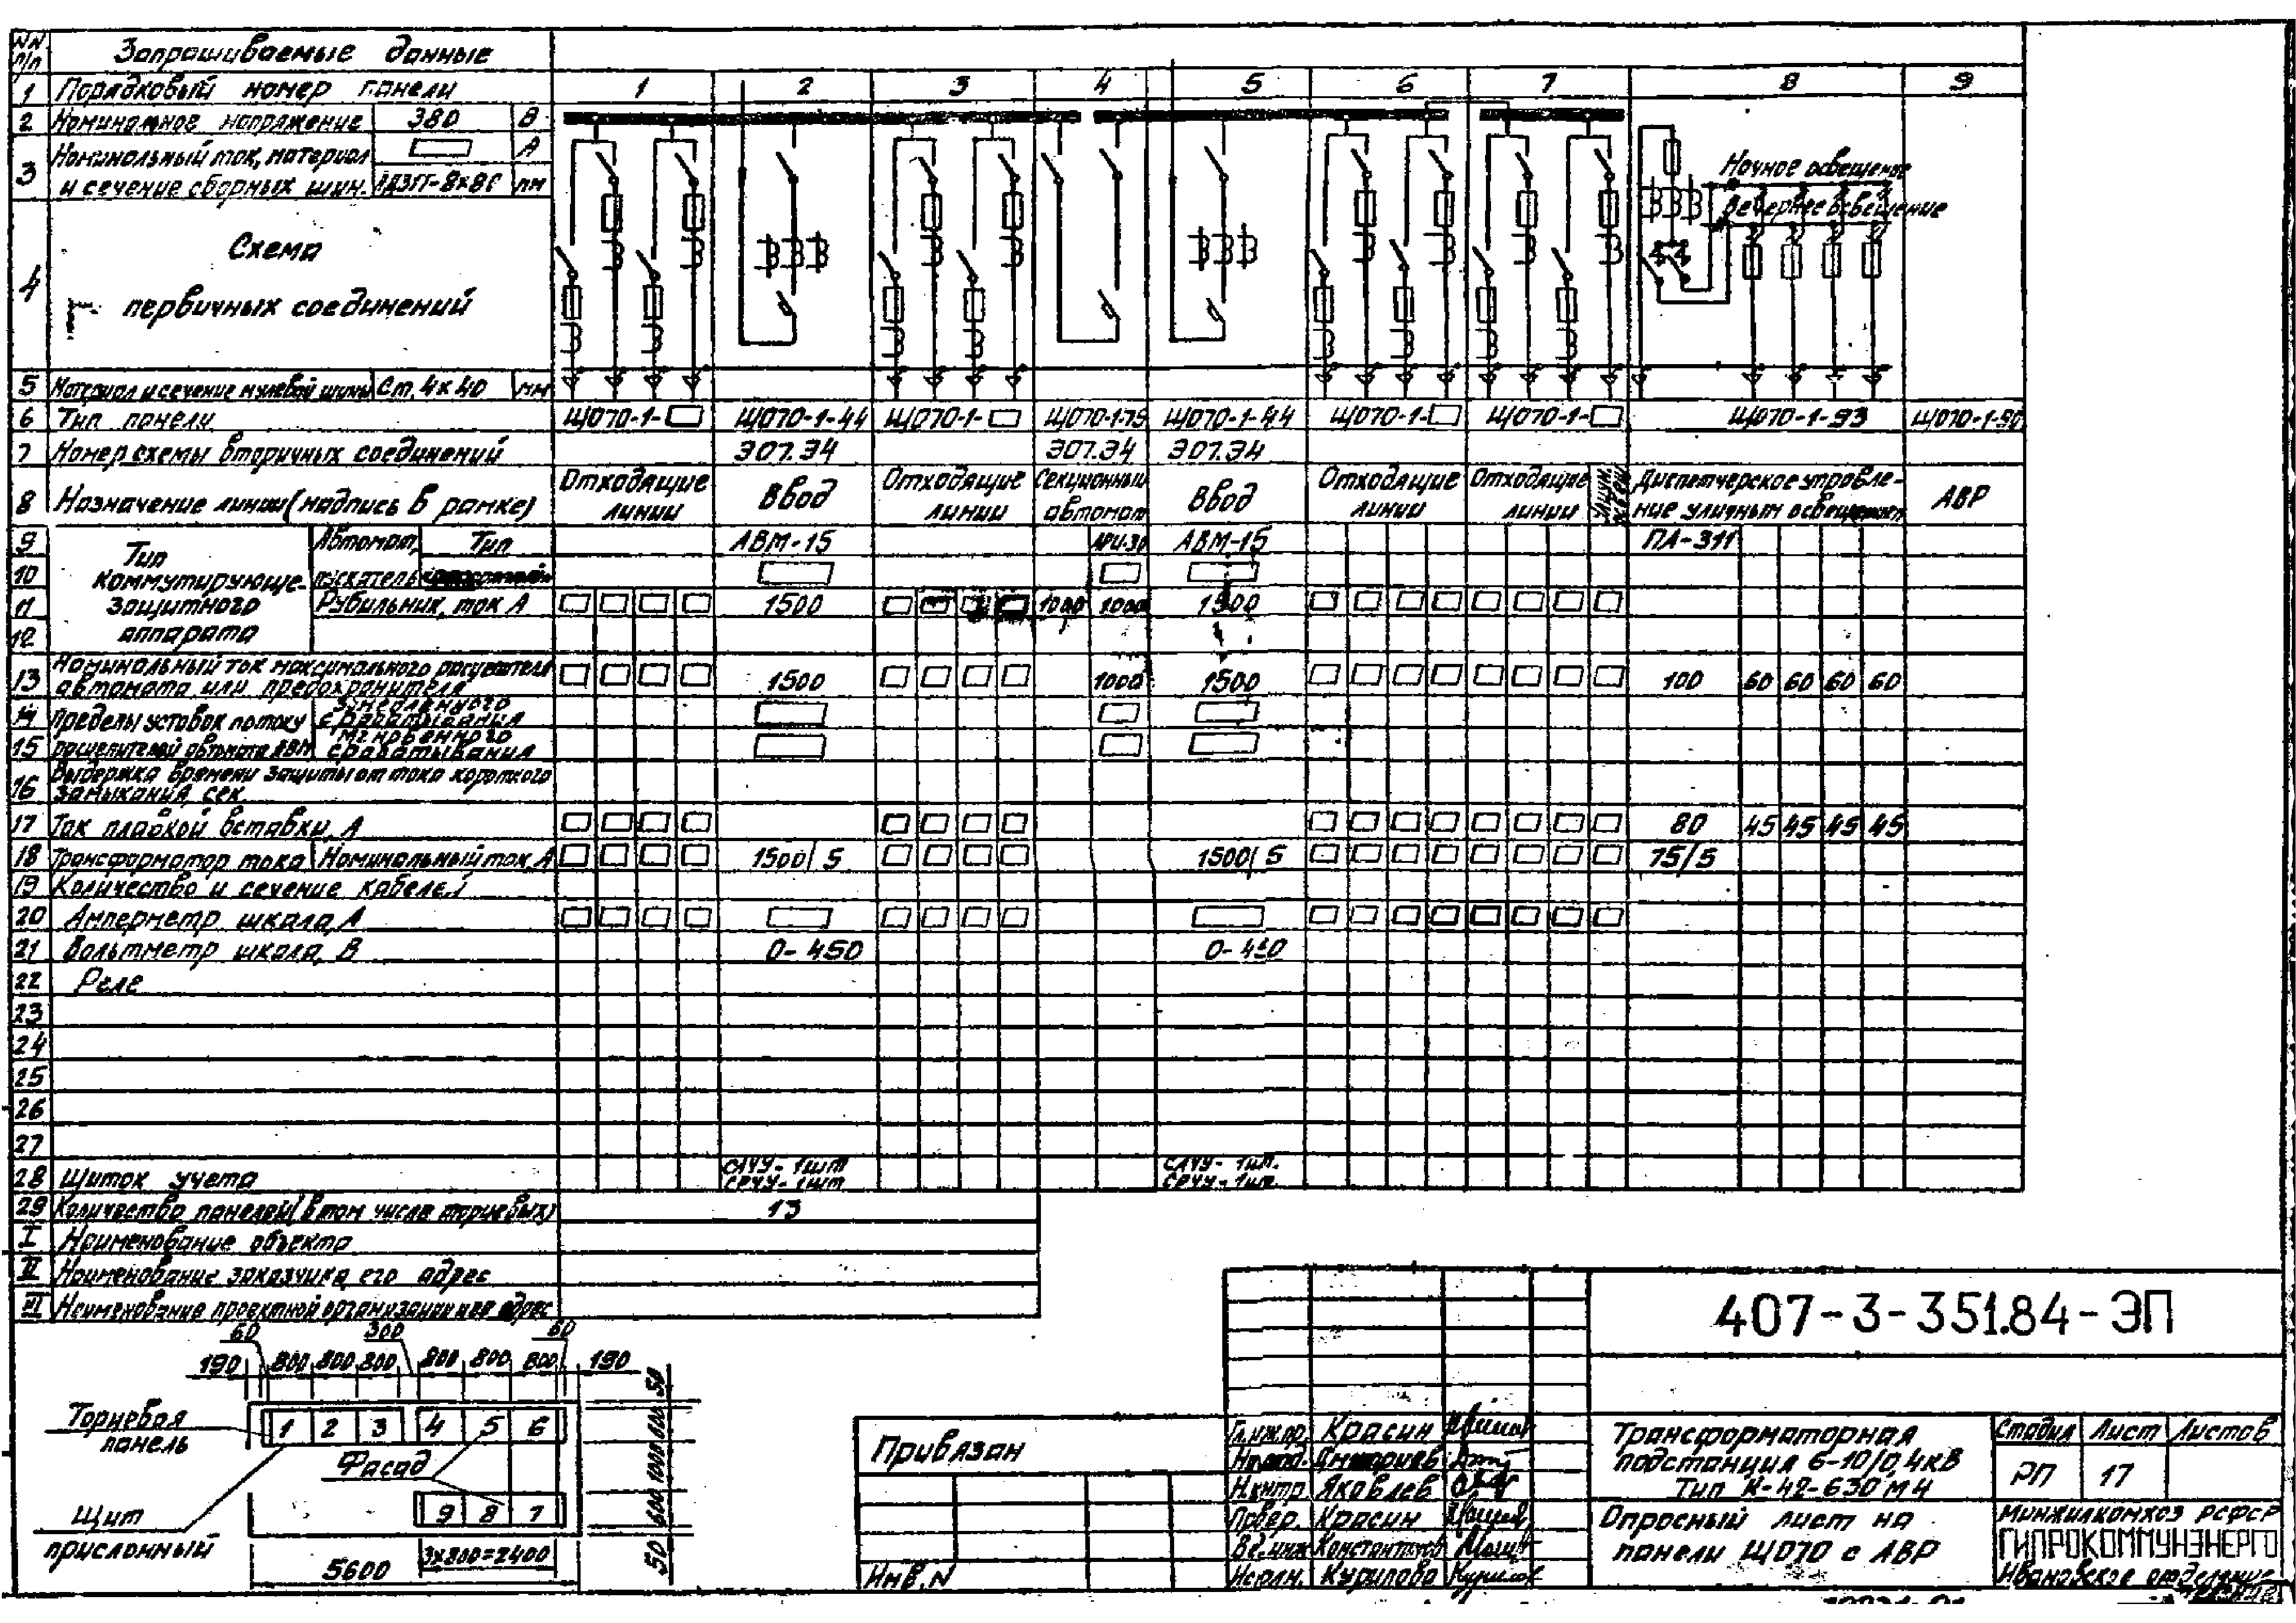 NN п/п Запрашиваемые данные
1 Порядковый номер панели 1 2 3 4 5 6 7 8 9
2 Номинальное напряжение 380 В
3 Номинальный ток, материал А
и сечение сборных шин. мм
Ночное освещение
Вечернее освещение
4 Схема
первичных соединений
5 Материал и сечение нулевой шины Ст. 4x40 мм
6 Тип панели ЩО70-1- ЩО70-1-44 ЩО70-1- ЩО70-1-75 ЩО70-1-44 ЩО70-1- ЩО70-1- ЩО70-1-93 ЩО70-1-90
7 Номер схемы вторичных соединений ЭО7.Э4 ЭО7.Э4 ЭО7.Э4
8 Назначение линии (надпись в рамке) Отходящие линии Ввод Отходящие линии Секционный автомат Ввод Отходящие линии Отходящие линии Диспетчерское управление уличным освещением АВР
9 Тип Автомат, Тип АВМ-15 АВМ-15 ПА-311
10 коммутирующе- пускатель
11 защитного Рубильник, ток А 1500 1000 1000 1500
12 аппарата
13 Номинальный ток максимального расцепителя
автомата или предохранителя 1500 1000 1500 100 60 60 60 60
14 Пределы уставок по току замедленного срабатывания
15 расцепителей автомата АВМ мгновенного срабатывания
16 Выдержка времени защиты от тока короткого
замыкания, сек
17 Ток плавкой вставки, А 80 45 45 45 45
18 Трансформатор тока Номинальный ток А 1500/5 1500/5 75/5
19 Количество и сечение кабелей
20 Амперметр шкала, А
21 Вольтметр шкала, В 0-450 0-450
22 Реле
23
24
25
26
27
28 Щиток учета САУУ-1шт САУУ-1шт.
СРУУ-1шт СРУУ-1шт.
29 Количество панелей (в том числе торцевых) 13
I Наименование объекта
II Наименование заказчика, его адрес
III Наименование проектной организации и ее адрес
60 300 60
190 800 800 800 800 800 800 190
Торцевая панель
1 2 3 4 5 6
Фасад
9 8 7
Щит прислонный
3x800=2400
5600
50 600 1000 600 50
Привязан
Инв. N
407-3-351.84-ЭП
Гл.инж.пр. Красин
Нач.отд.
Н.контр. Яковлев
Провер. Красин
Вед.инж Константинов
Исполн. Курилова
Трансформаторная
подстанция 6-10/0,4кВ
Тип К-42-630 М4
Стадия Лист Листов
РП 17
Опросный лист на
панели ЩО70 с АВР
Минжилкомхоз РСФСР
ГИПРОКОММУНЭНЕРГО
Ивановское отделение